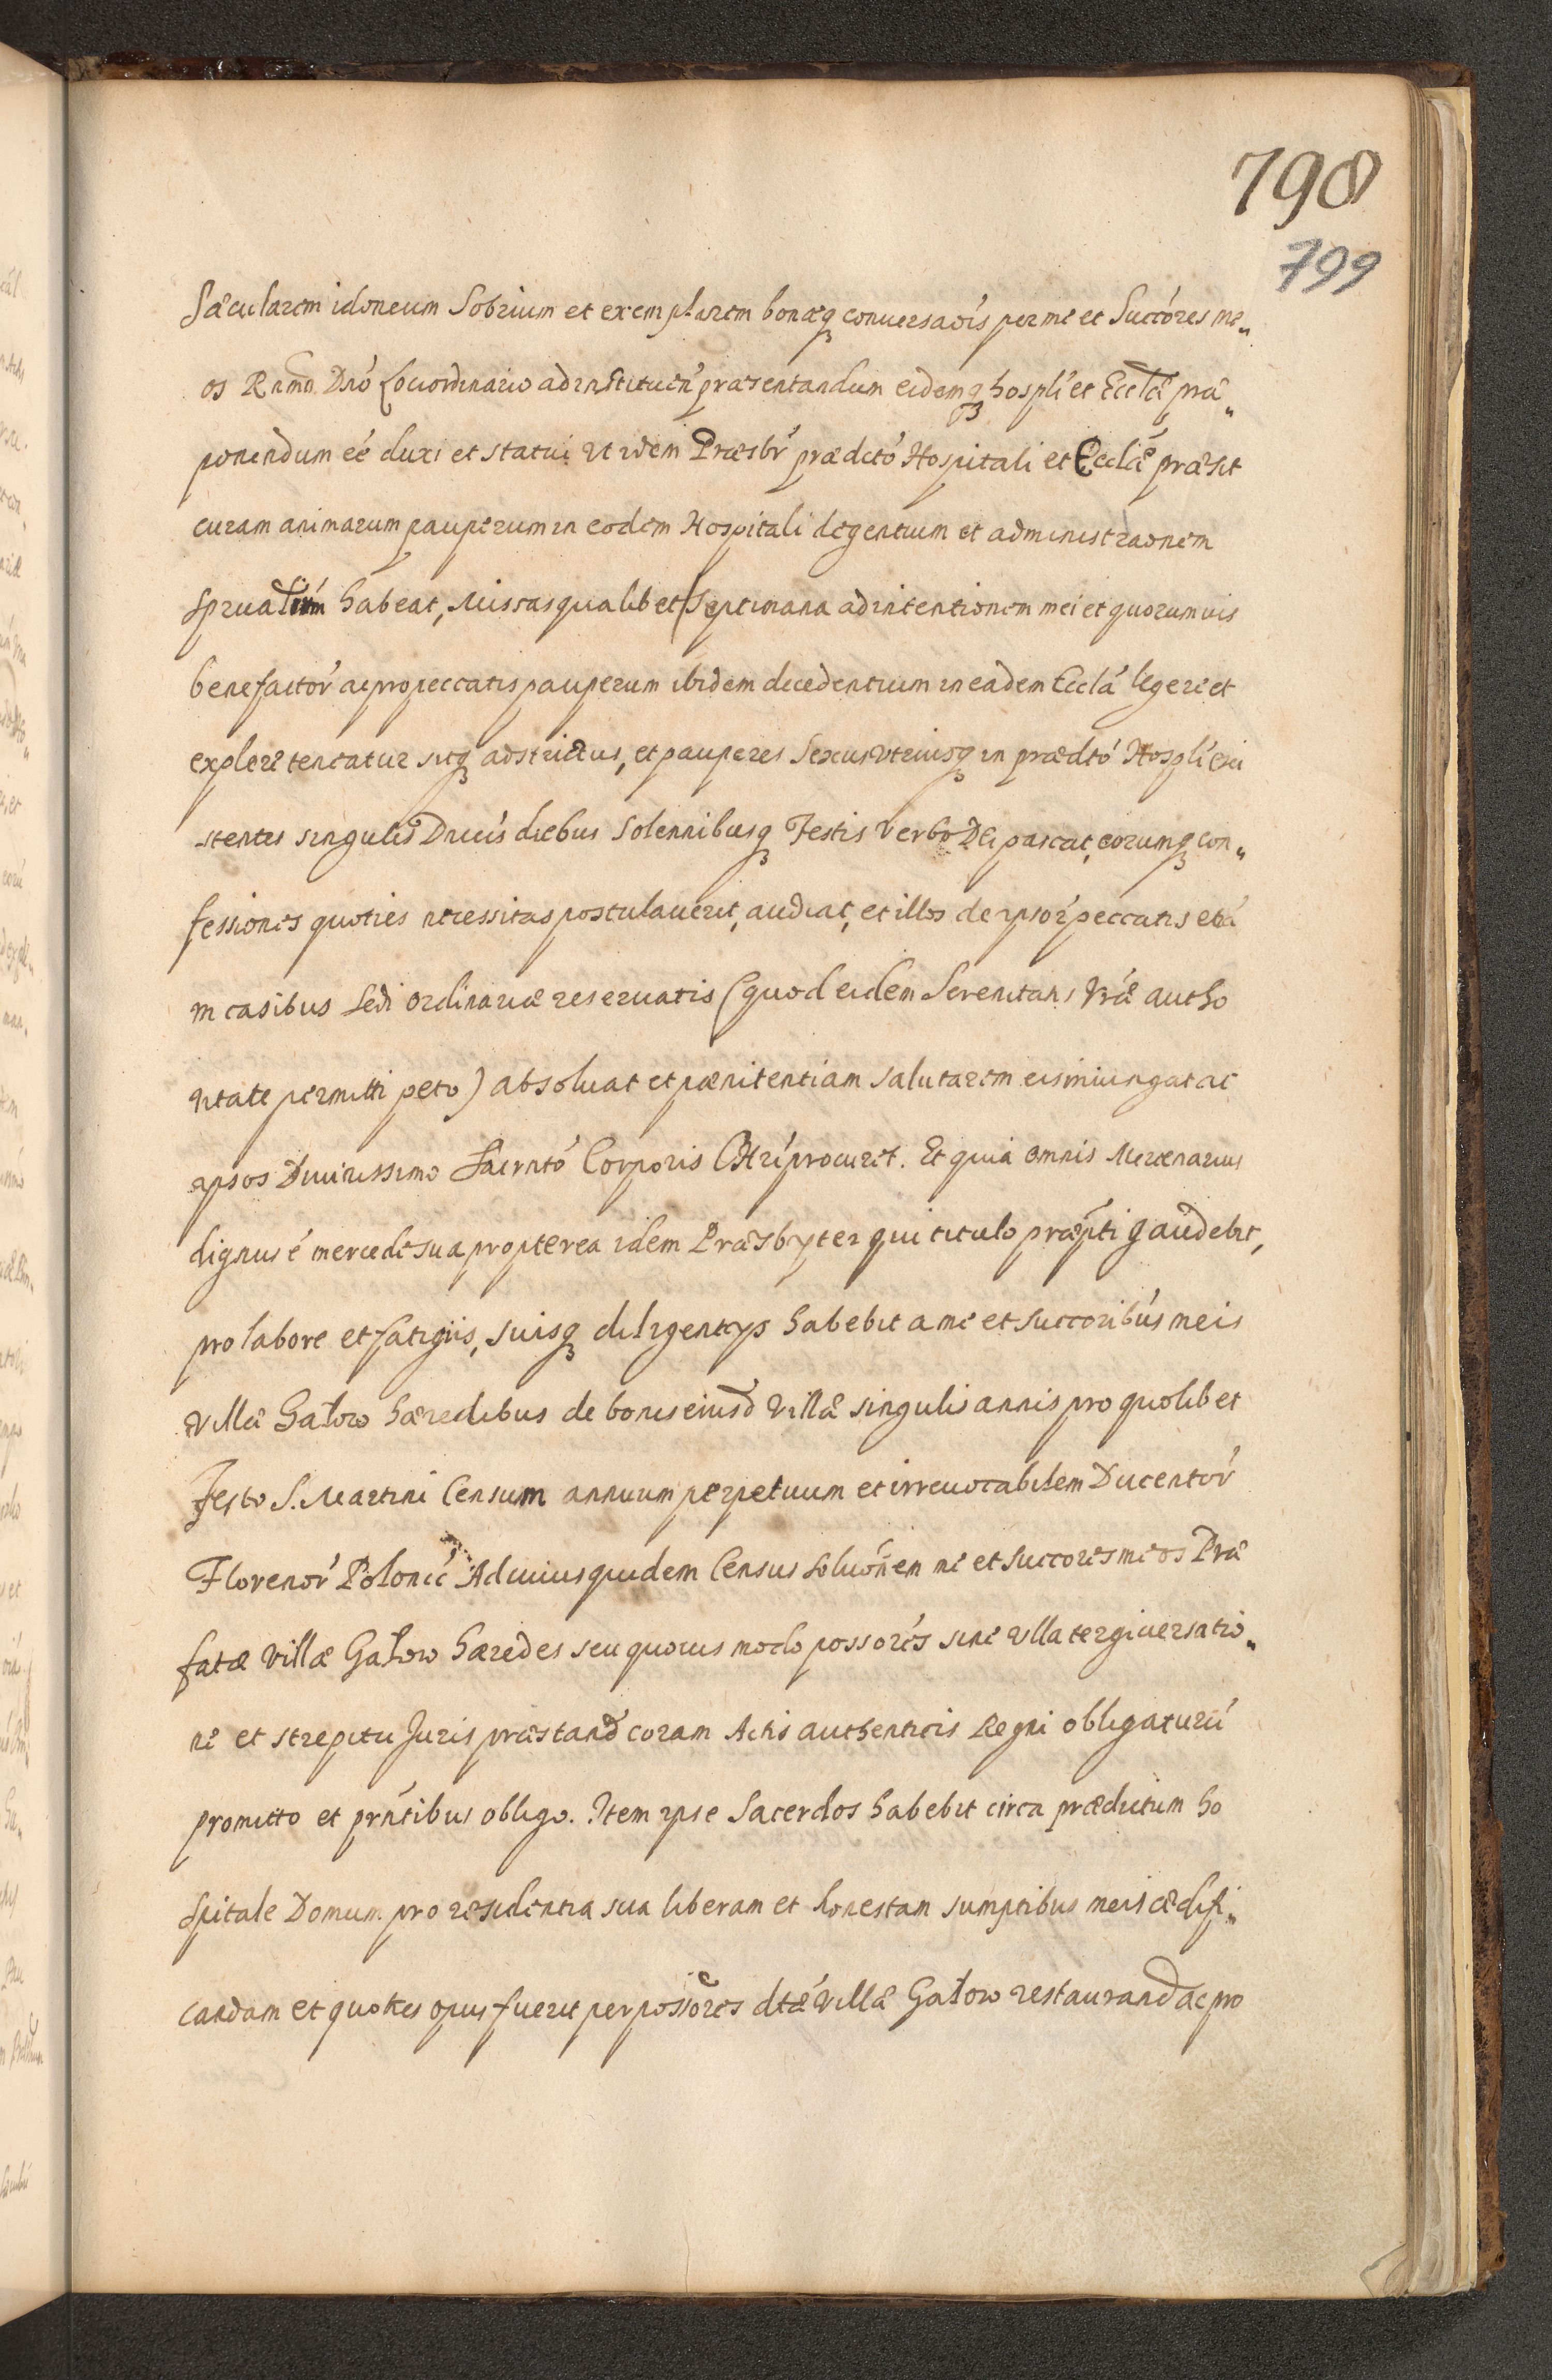 798
799
Sæcularem idoneum Sobrium et exemplarem bonæq3 conuersaõis per me et Succóres me„
os Rnmõ Dnó Locíordinario ad instituen̄ præsentandum eidemq3 hosplí et Eccłæ præ„
ponendum eé duxi et statui ut idem Præsbr̄ prædictó Hospitali et Ecclæ̃ præsit
curam animarum pauperum in eodem Hospitali degentium et administraonem
sprualium habeat, Missas qualibet Septimana ad intentionem mei et quorumuis
benefactor̃ ac pro peccatis pauperum ibidem decedentium in eadem Ecclá legere et
explere teneatur sitq3 adstrictus, et pauperes Sexus Utriusq3 in prædtó Hosplí exi
-stentes singulis Dnicis diebus Solennibusq3 Festis Verbo Dei pascat, eorumq3 con„
fessiones quoties necessitas postulauerit, audiat, et illos de ipsor̃ peccatis etiá
in casibus Sedi Ordinariæ reseruatis (quod eidem Serenitatis Vræ autho
ritate permitti peto) absoluat et pænitentiam salutarem eis iniungat ac
ipsos Diuinissimo Sacrntó Corporis CHrí procuret. Et quia omnis Mercenarius
dignus é mercede sua propterea idem Præsbyter qui titulo præpti gaudebit,
pro labore et fatigiis, suisq3 diligentys habebit a me et succoribús meis
Villæ Gałow hæredibus de bonis eiusd Villæ singulis annis pro quolibet
Festo S. Martini Censum annuum perpetuum et irreuocabilem Ducentor̃
Florenor̃ Polonic̃ Ad cuius quidem Census soluõnem me et succores meos Præ
fatæ Villæ Gałow hæredes seu quouis modo possorés sine ulla tergiuersatio„
ne et strepitu Juris præstand coram Actis authenticis Regni obligaturú
promitto et prñtibus obligo. Item ipse Sacerdos habebit circa prædictum ho
spitale Domum pro residentia sua liberam et honestam sumptibus meis ædifi„
candam et quoties opus fuerit per possores dtæ Villæ Gałow restaurand ac pro